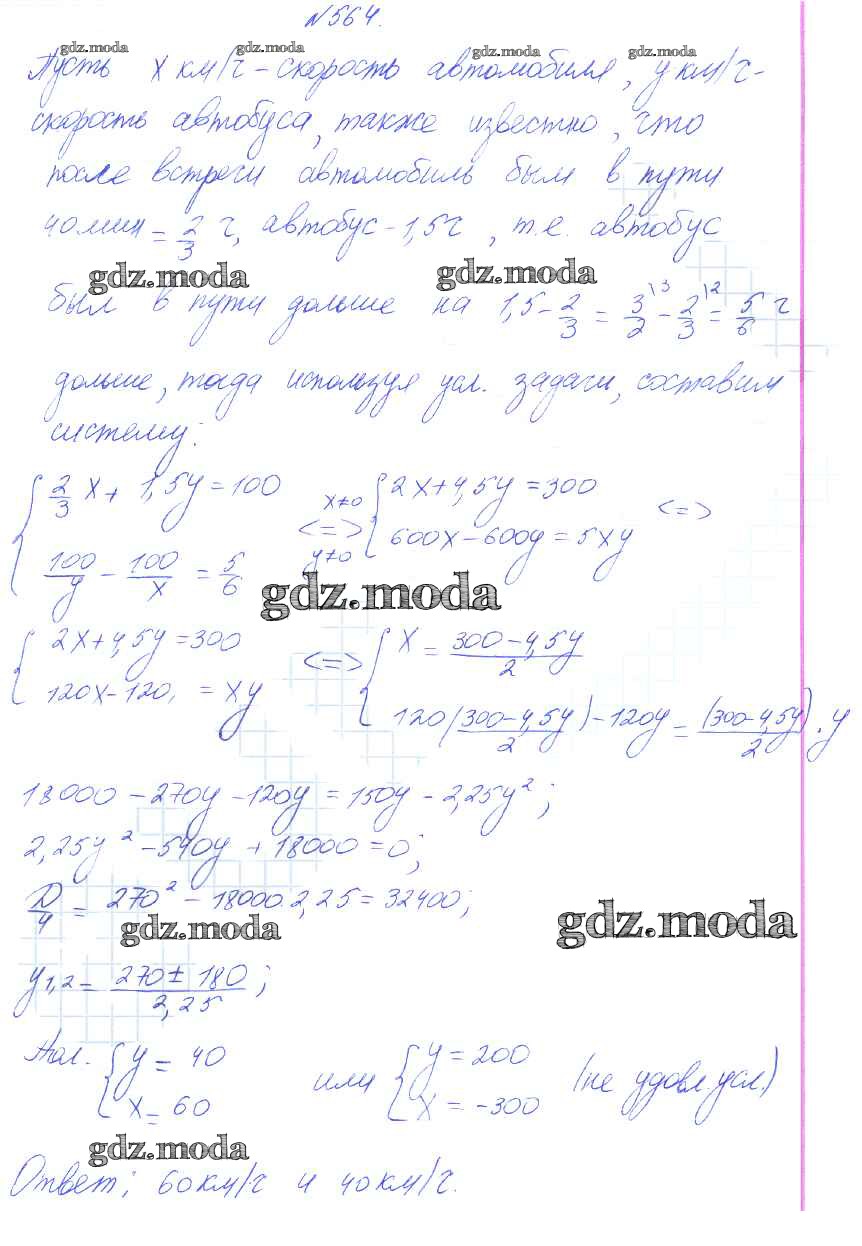 №564.
gdz.moda gdz.moda gdz.moda gdz.moda
Пусть x км/ч - скорость автомобиля, y км/ч -
скорость автобуса, также известно, что
после встречи автомобиль был в пути
40 мин = 2/3 ч, автобус - 1,5 ч, т.е. автобус
gdz.moda gdz.moda
был в пути дольше на 1,5 - 2/3 = 3/2 \3 - 2/3 \2 = 5/6 ч
дольше, тогда используя усл. задачи, составим
систему:
{ 2/3 x + 1,5y = 100 x≠0 { 2x + 4,5y = 300
100/y - 100/x = 5/6 <=> y≠0 600x - 600y = 5xy <=>
gdz.moda
{ 2x + 4,5y = 300 <=> { x = (300 - 4,5y)/2
120x - 120, = xy 120((300 - 4,5y)/2) - 120y = (300 - 4,5y)/2 · y
18000 - 270y - 120y = 150y - 2,25y²;
2,25y² - 540y + 18000 = 0;
D/4 = 270² - 18000·2,25 = 32400;
gdz.moda gdz.moda
y1,2 = (270 ± 180)/2,25;
{ y = 40 или { y = 200 (не удовл. усл.)
x = 60 x = -300
gdz.moda
Ответ: 60 км/ч и 40 км/ч.